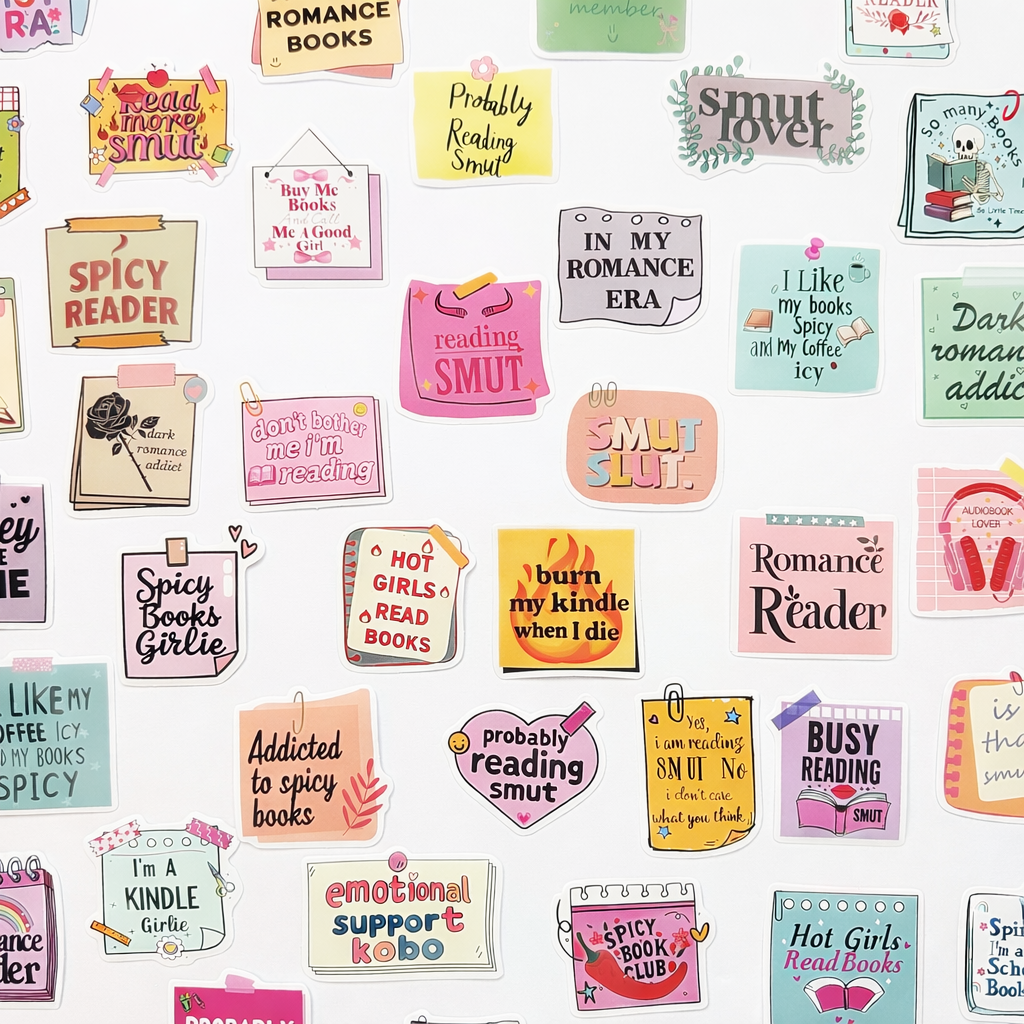 RA
ROMANCE
BOOKS
member
READER
Read
more
smut
Probably
Reading
Smut
smut
lover
So many Books
So Little Time
Buy Me
Books
And Call
Me A Good
Girl
SPICY
READER
IN MY
ROMANCE
ERA
I Like
my books
Spicy
and My Coffee
icy
reading
SMUT
Dark
roman
addic
dark
romance
addict
don't bother
me i'm
reading
SMUT
SLUT.
AUDIOBOOK
LOVER
ey
E
IE
Spicy
Books
Girlie
HOT
GIRLS
READ
BOOKS
burn
my kindle
when I die
Romance
Reader
LIKE MY
OFFEE ICY
D MY BOOKS
SPICY
Addicted
to spicy
books
probably
reading
smut
Yes,
i am reading
SMUT No
i don't care
what you think
BUSY
READING
SMUT
is
tha
smu
I'm A
KINDLE
Girlie
emotional
support
kobo
SPICY
BOOK
CLUB
Hot Girls
Read Books
ance
der
Spi
I'm a
Sch
Book
PROBABLY